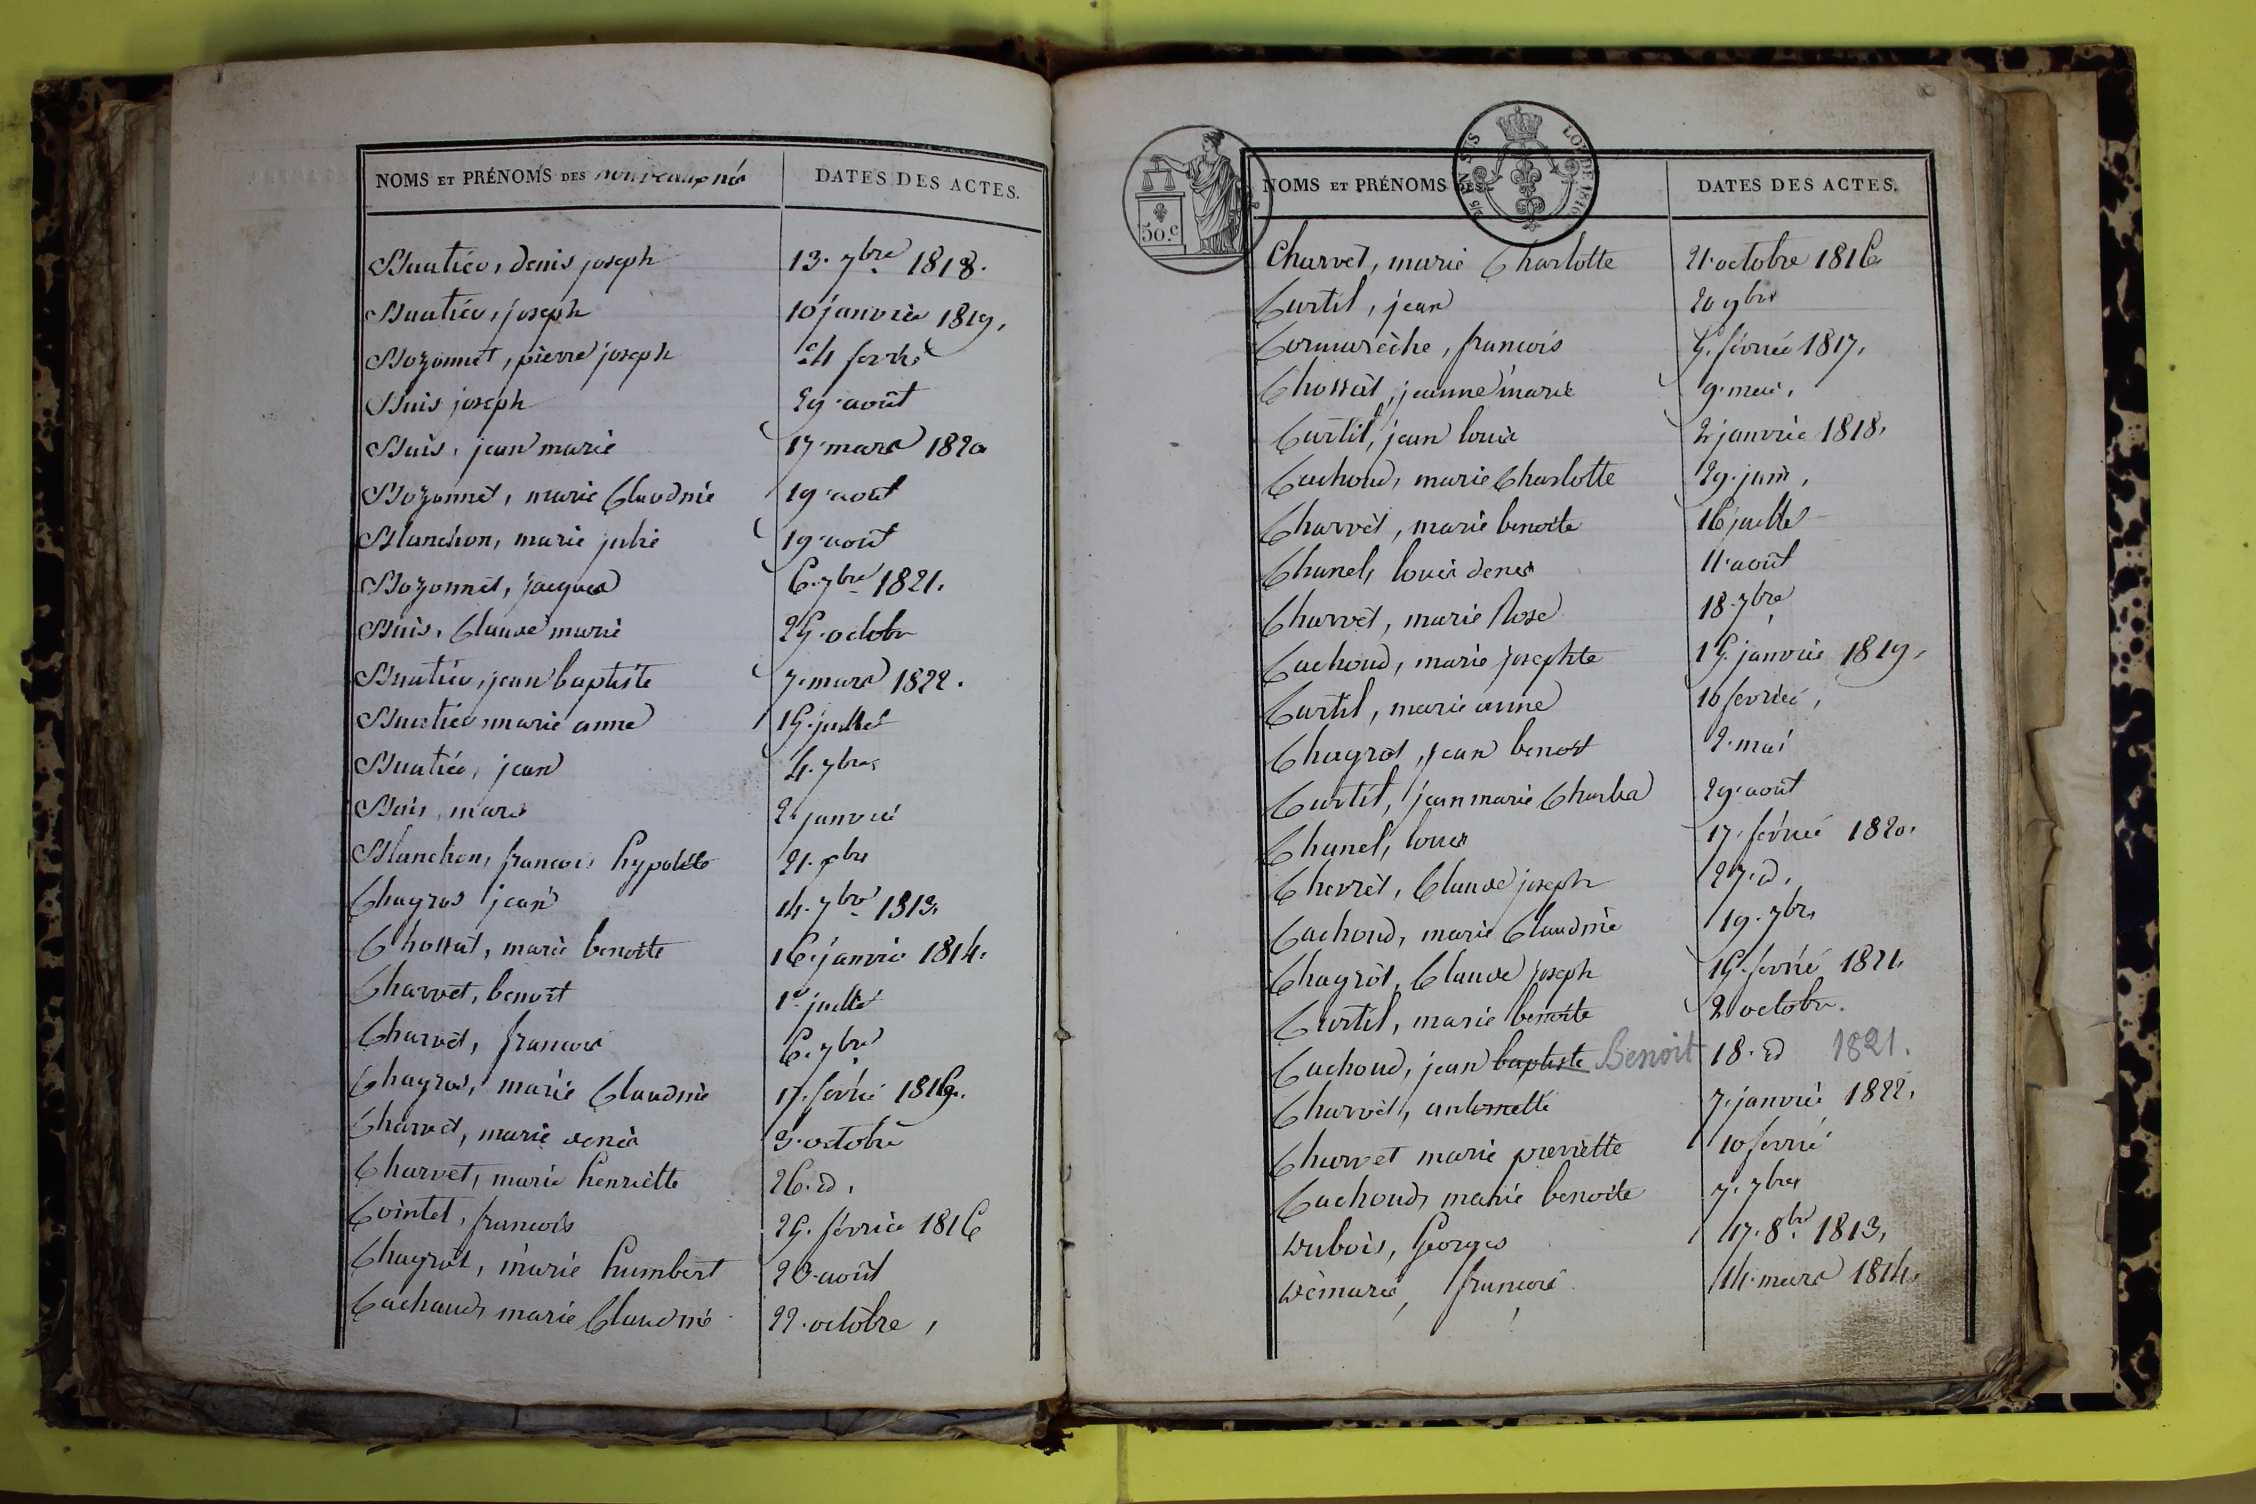 NOMS ET PRÉNOMS DES nouveaux nés DATES DES ACTES.
Buatier, denis joseph 13. 7bre 1818.
Buatier, joseph 10 janvier 1819,
Bozonnet, pierre joseph 24 fevrier
Buis joseph 29 août
Buis, jean marie 17 mars 1820
Bozonnet, marie Claudine 19 août
Blanchon, marie julie 19 août
Bozonnet, jacques 6. 7bre 1821.
Buis, Claude marie 25 octobre
Buatier, jean baptiste 7. mars 1822.
Buatier marie anne 15. juillet
Buatier, jean 4. 7bre
Buis, marie 2 janvier
Blanchon, françois hypolite 21.
Chagros jean 14. 7bre 1813.
Chossat, marie benoite 16 janvier 1814.
Charvet, benoit 1er juillet
Charvet, françois 6. 7bre
Chagros, marie Claudine 17. fevrier 1815.
Charvet, marie denise 3. octobre
Charvet, marie henriette 26. id,
Cointet, françois 25. février 1816
Chagrot, marie humbert 20. août
Cachoud, marie Claudine 22. octobre,
50.c
LOI DE 1816
NOMS ET PRÉNOMS DES DATES DES ACTES.
Charvet, marie Charlotte 21. octobre 1816
Curtil, jean 20 9bre
Cormarèche, françois 5. février 1817.
Chossat, jeanne marie 9. mai,
Curtil, jean louis 2 janvier 1818.
Cachoud, marie Charlotte 29. juin,
Charvet, marie benoite 16 juillet
Chanel, louis denis 11. août
Charvet, marie Rose 18. 7bre
Cachoud, marie josephte 15. janvier 1819.
Curtil, marie anne 10 fevrier,
Chagrot, jean benoit 2. mai
Curtil, jean marie Charles 29. août
Chanel, louis 17. février 1820.
Chevret, Claude joseph 27. id,
Cachoud, marie Claudine 19. 7bre
Chagrot, Claude joseph 15. fevrier 1821.
Curtil, marie benoite 2 octobre.
Cachoud, jean baptiste Benoit 18. id 1821.
Charvet, antoinette 7. janvier 1822.
Charvet marie pierrette 10 fevrier
Cachoud, marie benoite 7. 7bre
Dubois, Georges 17. 8bre 1813,
Demarie, françois 14. mars 1814.